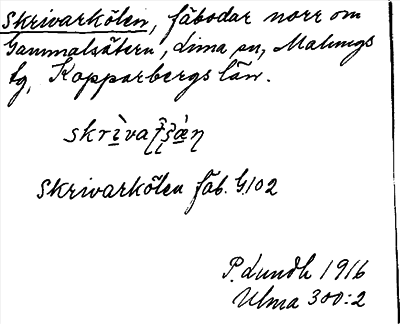 Skrivarkölen, fäbodar norr om
Gammalsätern, Lima sn, Malungs
tg, Kopparbergs län.
Skrivarkölen fäb. G.102
P. Lundh 1916
Ulma 300:2